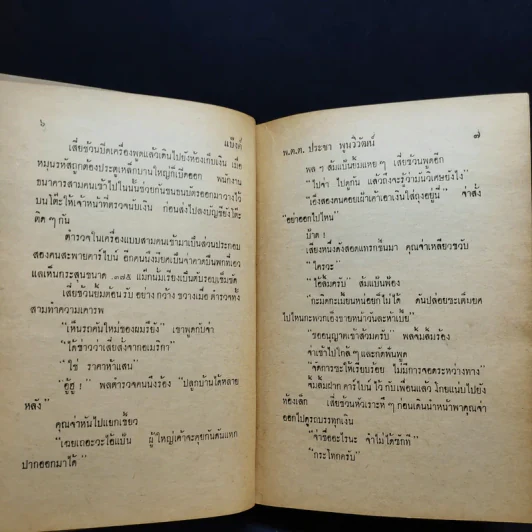 ๖
แบ๊งค์
เสี่ยช้วนปิดเครื่องพูดแล้วเดินไปยังห้องเก็บเงิน เมื่อ
หมุนรหัสถูกต้องประตูเหล็กบานใหญ่ก็เปิดออก พนักงาน
ธนาคารสามคนเข้าไปในนั้นช่วยกันขนธนบัตรออกมาวางไว้
บนโต๊ะให้เจ้าหน้าที่ตรวจนับเงิน ก่อนส่งไปลงบัญชียังโต๊ะ
ติด ๆ กัน
ตำรวจในเครื่องแบบสามคนเข้ามาเป็นส่วนประกอบ
สองคนสะพายคาร์ไบน์ อีกคนนึงบั้ยเป็นจ่าคาดปืนพกที่เอว
แลเห็นกระสุนขนาด .๓๕๗๕ แม็กนั่มเรียงเป็นตับรอบเข็มขัด
เสี่ยช้วนยิ้มต้อนรับ อย่างกว้าง ขวางเมื่อ ตำรวจทั้ง
สามทำความเคารพ
"เห็นรถคันใหม่ของผมรึยัง" เขาพูดกับจ่า
"ได้ข่าวว่าเสี่ยสั่งจากอเมริกา"
"ใช่ ราคาห้าแสน"
"อู้ฮู !" พลตำรวจคนนึงร้อง "ปลูกบ้านได้หลาย
หลัง"
คุณจ่าหันไปแยกเขี้ยว
"เฉยเถอะวะไอ้แป้น ผู้ใหญ่เค้าจะคุยกันดันแหก
ปากออกมาได้"
พ.ต.ต. ประชา พูนวิวัฒน์
๗
พล ฯ ส้มแป้นยิ้มแหย ๆ เสี่ยช้วนพูดอีก
"ไปจ่า ไปดูกัน แล้วถึงจะรู้ว่ามันวิเศษยังไง"
"เอ็งสองคนคอยเฝ้าเค้าเอาเงินใส่ถุงอยู่นี่" จ่าสั่ง
"อย่าออกไปไหน"
ป้าด !
เสียงหนึ่งดังสอดแทรกขึ้นมา คุณจ่าเหลียวขวับ
"ใครวะ"
"ไอ้ส้มครับ" ส้มแป้นฟ้อง
"กะมิดกะเมี้ยนหน่อยก็ไม่ได้ ดันปล่อยซะเต็มยศ
ไปไหนกะพวกเอ็งขายหน้าวันละห้าเบี้ย"
"ขออนุญาตเข้าส้วมครับ" พลจิ้มส้มร้อง
จ่าเข้าไปใกล้ ๆ และกัดฟันพูด
"จัดการซะให้เรียบร้อย ไม่มีการจอดระหว่างทาง"
จิ้มส้มฝาก คาร์ไบน์ ไว้ กับเพื่อนแล้ว โกยแน่บไปยัง
ห้องเล็ก เสี่ยช้วนหัวเราะหึ ๆ ก่อนเดินนำหน้าพาคุณจ่า
ออกไปดูรถบรรทุกเงิน
"จ่าชื่ออะไรนะ จำไม่ได้ซักที"
"กระโทกครับ"